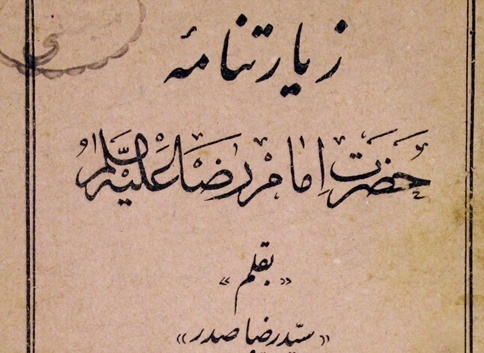 زیارتنامهٔ
حضرت امام رضا علیه‌السلام
«بقلم»
«سیّد رضا صدر»